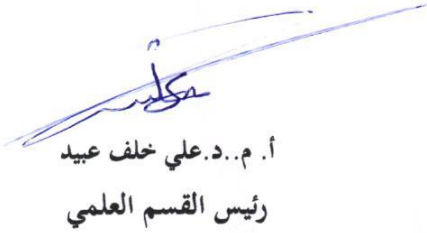 أ. م..د.علي خلف عبيد
رئيس القسم العلمي